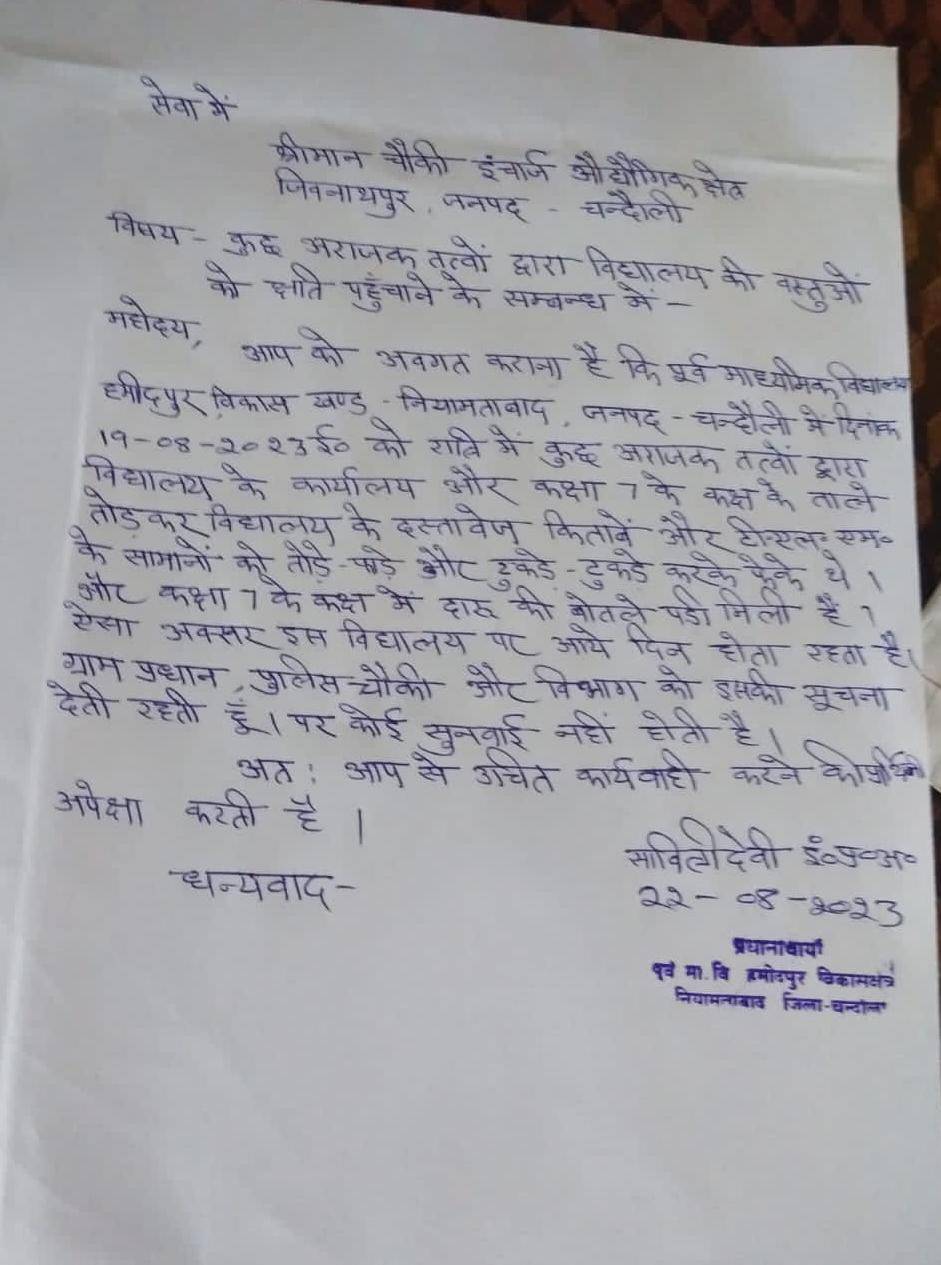 सेवा में
श्रीमान चौकी इंचार्ज औद्यौगिक क्षेत्र
जिवनाथपुर, जनपद - चन्दौली
विषय - कुछ अराजक तत्वों द्वारा विद्यालय की वस्तुओं
को क्षति पहुँचाने के सम्बन्ध में -
महोदय,
आप को अवगत कराना है कि पूर्व माध्यमिक विद्यालय
हमीदपुर, विकास खण्ड - नियामताबाद, जनपद - चन्दौली में दिनांक
19-08-2023 ई० को रात्रि में कुछ अराजक तत्वों द्वारा
विद्यालय के कार्यालय और कक्षा 7 के कक्ष के ताले
तोड़कर विद्यालय के दस्तावेज किताबें और टी॰एल॰ एम॰
के सामानों को तोड़े-फाड़े और टुकड़े-टुकड़े करके फेंके थे।
और कक्षा 7 के कक्ष में दारू की बोतले पड़ी मिली है।
ऐसा अक्सर इस विद्यालय पर आये दिन होता रहता है।
ग्राम प्रधान, पुलिस चौकी और विभाग को इसकी सूचना
देती रहती हूँ। पर कोई सुनवाई नहीं होती है।
अतः आप से उचित कार्यवाही करने की प्रार्थिनी
अपेक्षा करती है।
धन्यवाद-
सावित्री देवी इं०प्र०अ०
22-08-2023
प्रधानाचार्या
पूर्व मा. वि हमीदपुर विकासक्षेत्र
नियामताबाद जिला-चन्दौली